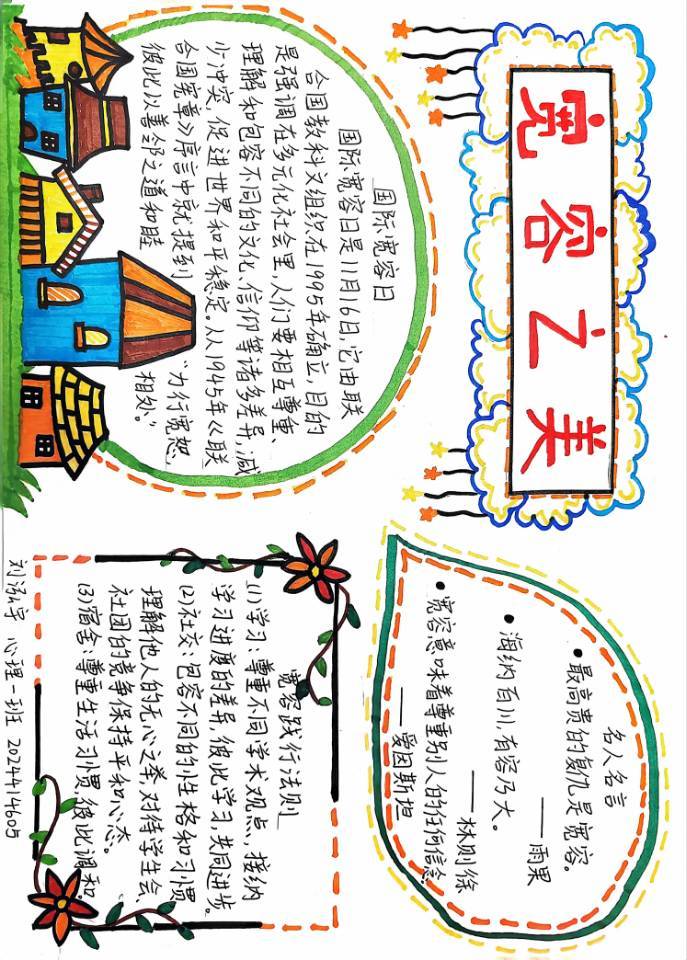 宽容之美
国际宽容日
国际宽容日是11月16日，它由联
合国教科文组织在1995年确立，目的
是强调在多元化社会里，人们要相互尊重、
理解和包容不同的文化、信仰等诸多差异，减
少冲突，促进世界和平稳定。从1945年《联
合国宪章》序言中就提到“力行宽恕，
彼此以善邻之道和睦相处。”
名人名言
最高贵的复仇是宽容。
——雨果
海纳百川，有容乃大。
——林则徐
宽容意味着尊重别人的任何信念
——爱因斯坦
宽容践行法则
(1)学习：尊重不同学术观点，接纳
学习进度的差异，彼此学习，共同进步。
(2)社交：包容不同的性格和习惯
理解他人的无心之举，对待学生会、
社团的竞争保持平和心态
(3)宿舍：尊重生活习惯，彼此调和。
刘泓宇 心理一班 2024414605